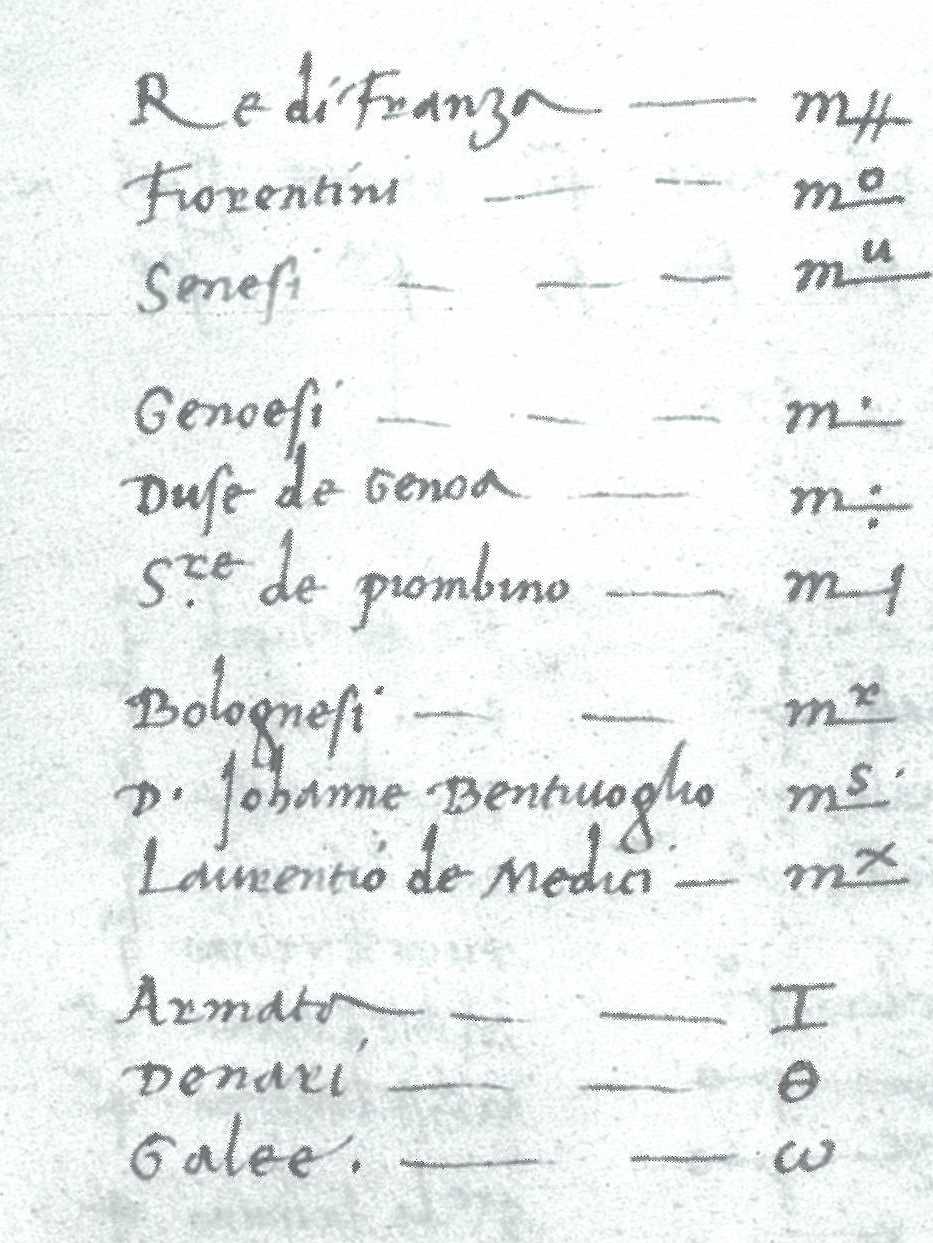 Re di Franza — m#
Fiorentini — — mo
Senesi — — — mu
Genoesi — — — m·
Duse de Genoa — m÷
S.re de piombino — m
Bolognesi — — mr
D. Johanne Bentiuoglio ms
Laurentio de Medici — mx
Armata — — I
Denari — — θ
Galee. — — ω